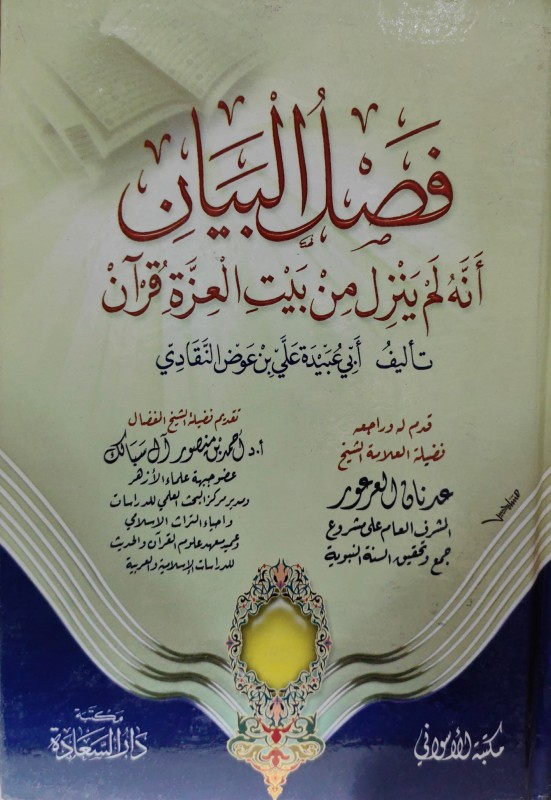 فَصْلُ الْبَيَانِ
أَنَّهُ لَمْ يَنْزِل مِنْ بَيْتِ الْعِزَّةِ قُرْآنْ
تأليفُ أَبِي عُبَيْدَة عَلَي بِنْ عَوَض النَّقَادِي
قدم له وراجعه
فضيلة العلامة الشيخ
عدنان العرعور
المشرف العام على مشروع
جمع وتحقيق السنة النبوية
تقديم فضيلة الشيخ المفضال
أ.د أحمد بن منصور آل سبالك
عضو جبهة علماء الأزهر
ومدير مركز البحث العلمي للدراسات
وإحياء التراث الإسلامي
وعميد معهد علوم القرآن والحديث
للدراسات الإسلامية والعربية
مكتبة الأموالي
مكتبة
دار السعادة